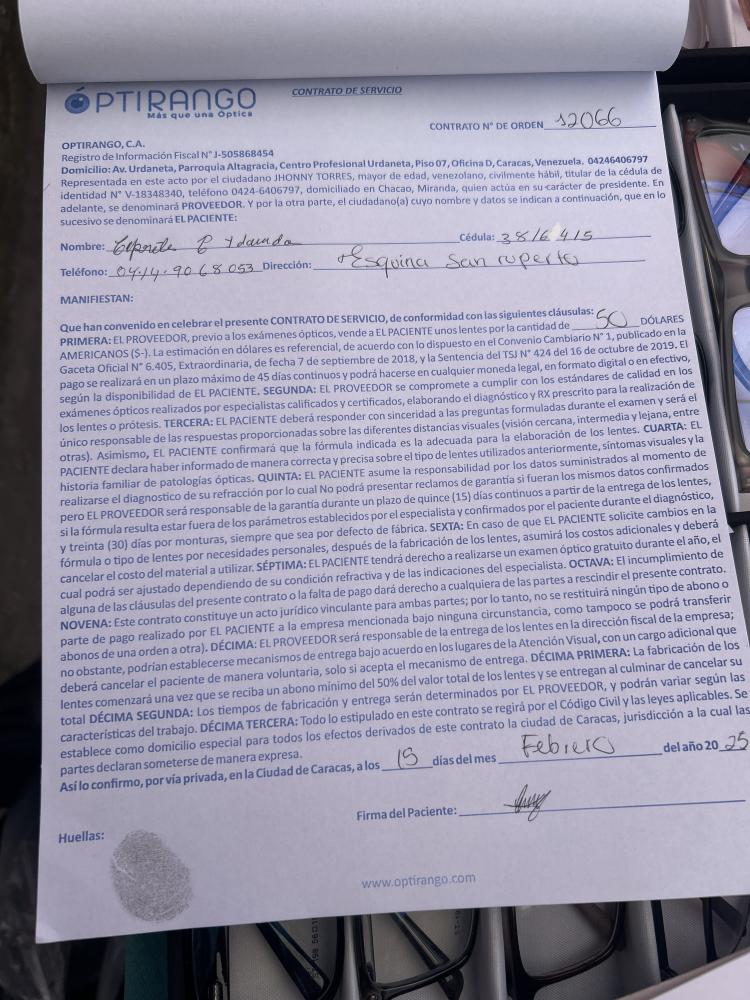 ÓPTIRANGO
Más que una Óptica
CONTRATO DE SERVICIO
CONTRATO N° DE ORDEN 12066
OPTIRANGO, C.A.
Registro de Información Fiscal N° J-505868454
Domicilio: Av. Urdaneta, Parroquia Altagracia, Centro Profesional Urdaneta, Piso 07, Oficina D, Caracas, Venezuela. 04246406797
Representada en este acto por el ciudadano JHONNY TORRES, mayor de edad, venezolano, civilmente hábil, titular de la cédula de
identidad N° V-18348340, teléfono 0424-6406797, domiciliado en Chacao, Miranda, quien actúa en su carácter de presidente. En
adelante, se denominará PROVEEDOR. Y por la otra parte, el ciudadano(a) cuyo nombre y datos se indican a continuación, que en lo
sucesivo se denominará EL PACIENTE:
Nombre: Cédula: 3816415
Teléfono: 0414.9068053 Dirección: Esquina San ruperto
MANIFIESTAN:
Que han convenido en celebrar el presente CONTRATO DE SERVICIO, de conformidad con las siguientes cláusulas:
PRIMERA: EL PROVEEDOR, previo a los exámenes ópticos, vende a EL PACIENTE unos lentes por la cantidad de 50 DÓLARES
AMERICANOS ($-). La estimación en dólares es referencial, de acuerdo con lo dispuesto en el Convenio Cambiario N° 1, publicado en la
Gaceta Oficial N° 6.405, Extraordinaria, de fecha 7 de septiembre de 2018, y la Sentencia del TSJ N° 424 del 16 de octubre de 2019. El
pago se realizará en un plazo máximo de 45 días continuos y podrá hacerse en cualquier moneda legal, en formato digital o en efectivo,
según la disponibilidad de EL PACIENTE. SEGUNDA: EL PROVEEDOR se compromete a cumplir con los estándares de calidad en los
exámenes ópticos realizados por especialistas calificados y certificados, elaborando el diagnóstico y RX prescrito para la realización de
los lentes o prótesis. TERCERA: EL PACIENTE deberá responder con sinceridad a las preguntas formuladas durante el examen y será el
único responsable de las respuestas proporcionadas sobre las diferentes distancias visuales (visión cercana, intermedia y lejana, entre
otras). Asimismo, EL PACIENTE confirmará que la fórmula indicada es la adecuada para la elaboración de los lentes. CUARTA: EL
PACIENTE declara haber informado de manera correcta y precisa sobre el tipo de lentes utilizados anteriormente, síntomas visuales y la
historia familiar de patologías ópticas. QUINTA: EL PACIENTE asume la responsabilidad por los datos suministrados al momento de
realizarse el diagnostico de su refracción por lo cual No podrá presentar reclamos de garantía si fueran los mismos datos confirmados
pero EL PROVEEDOR será responsable de la garantía durante un plazo de quince (15) días continuos a partir de la entrega de los lentes,
si la fórmula resulta estar fuera de los parámetros establecidos por el especialista y confirmados por el paciente durante el diagnóstico,
y treinta (30) días por monturas, siempre que sea por defecto de fábrica. SEXTA: En caso de que EL PACIENTE solicite cambios en la
fórmula o tipo de lentes por necesidades personales, después de la fabricación de los lentes, asumirá los costos adicionales y deberá
cancelar el costo del material a utilizar. SÉPTIMA: EL PACIENTE tendrá derecho a realizarse un examen óptico gratuito durante el año, el
cual podrá ser ajustado dependiendo de su condición refractiva y de las indicaciones del especialista. OCTAVA: El incumplimiento de
alguna de las cláusulas del presente contrato o la falta de pago dará derecho a cualquiera de las partes a rescindir el presente contrato.
NOVENA: Este contrato constituye un acto jurídico vinculante para ambas partes; por lo tanto, no se restituirá ningún tipo de abono o
parte de pago realizado por EL PACIENTE a la empresa mencionada bajo ninguna circunstancia, como tampoco se podrá transferir
abonos de una orden a otra). DÉCIMA: EL PROVEEDOR será responsable de la entrega de los lentes en la dirección fiscal de la empresa;
no obstante, podrían establecerse mecanismos de entrega bajo acuerdo en los lugares de la Atención Visual, con un cargo adicional que
deberá cancelar el paciente de manera voluntaria, solo si acepta el mecanismo de entrega. DÉCIMA PRIMERA: La fabricación de los
lentes comenzará una vez que se reciba un abono mínimo del 50% del valor total de los lentes y se entregan al culminar de cancelar su
total DÉCIMA SEGUNDA: Los tiempos de fabricación y entrega serán determinados por EL PROVEEDOR, y podrán variar según las
características del trabajo. DÉCIMA TERCERA: Todo lo estipulado en este contrato se regirá por el Código Civil y las leyes aplicables. Se
establece como domicilio especial para todos los efectos derivados de este contrato la ciudad de Caracas, jurisdicción a la cual las
partes declaran someterse de manera expresa.
Así lo confirmo, por vía privada, en la Ciudad de Caracas, a los 15 días del mes Febrero del año 20 25
Firma del Paciente:
Huellas:
www.optirango.com